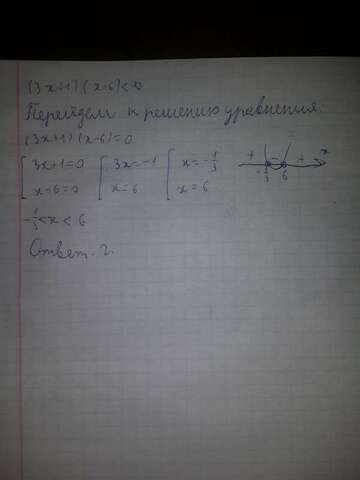 (3x+1)(x-6)<0
Перейдем к решению уравнения.
(3x+1)(x-6)=0
[ 3x+1=0 [ 3x=-1 [ x=-1/3
x-6=0 x=6 x=6
+ - + x
-1/3 6
-1/3<x<6
Ответ. 2.